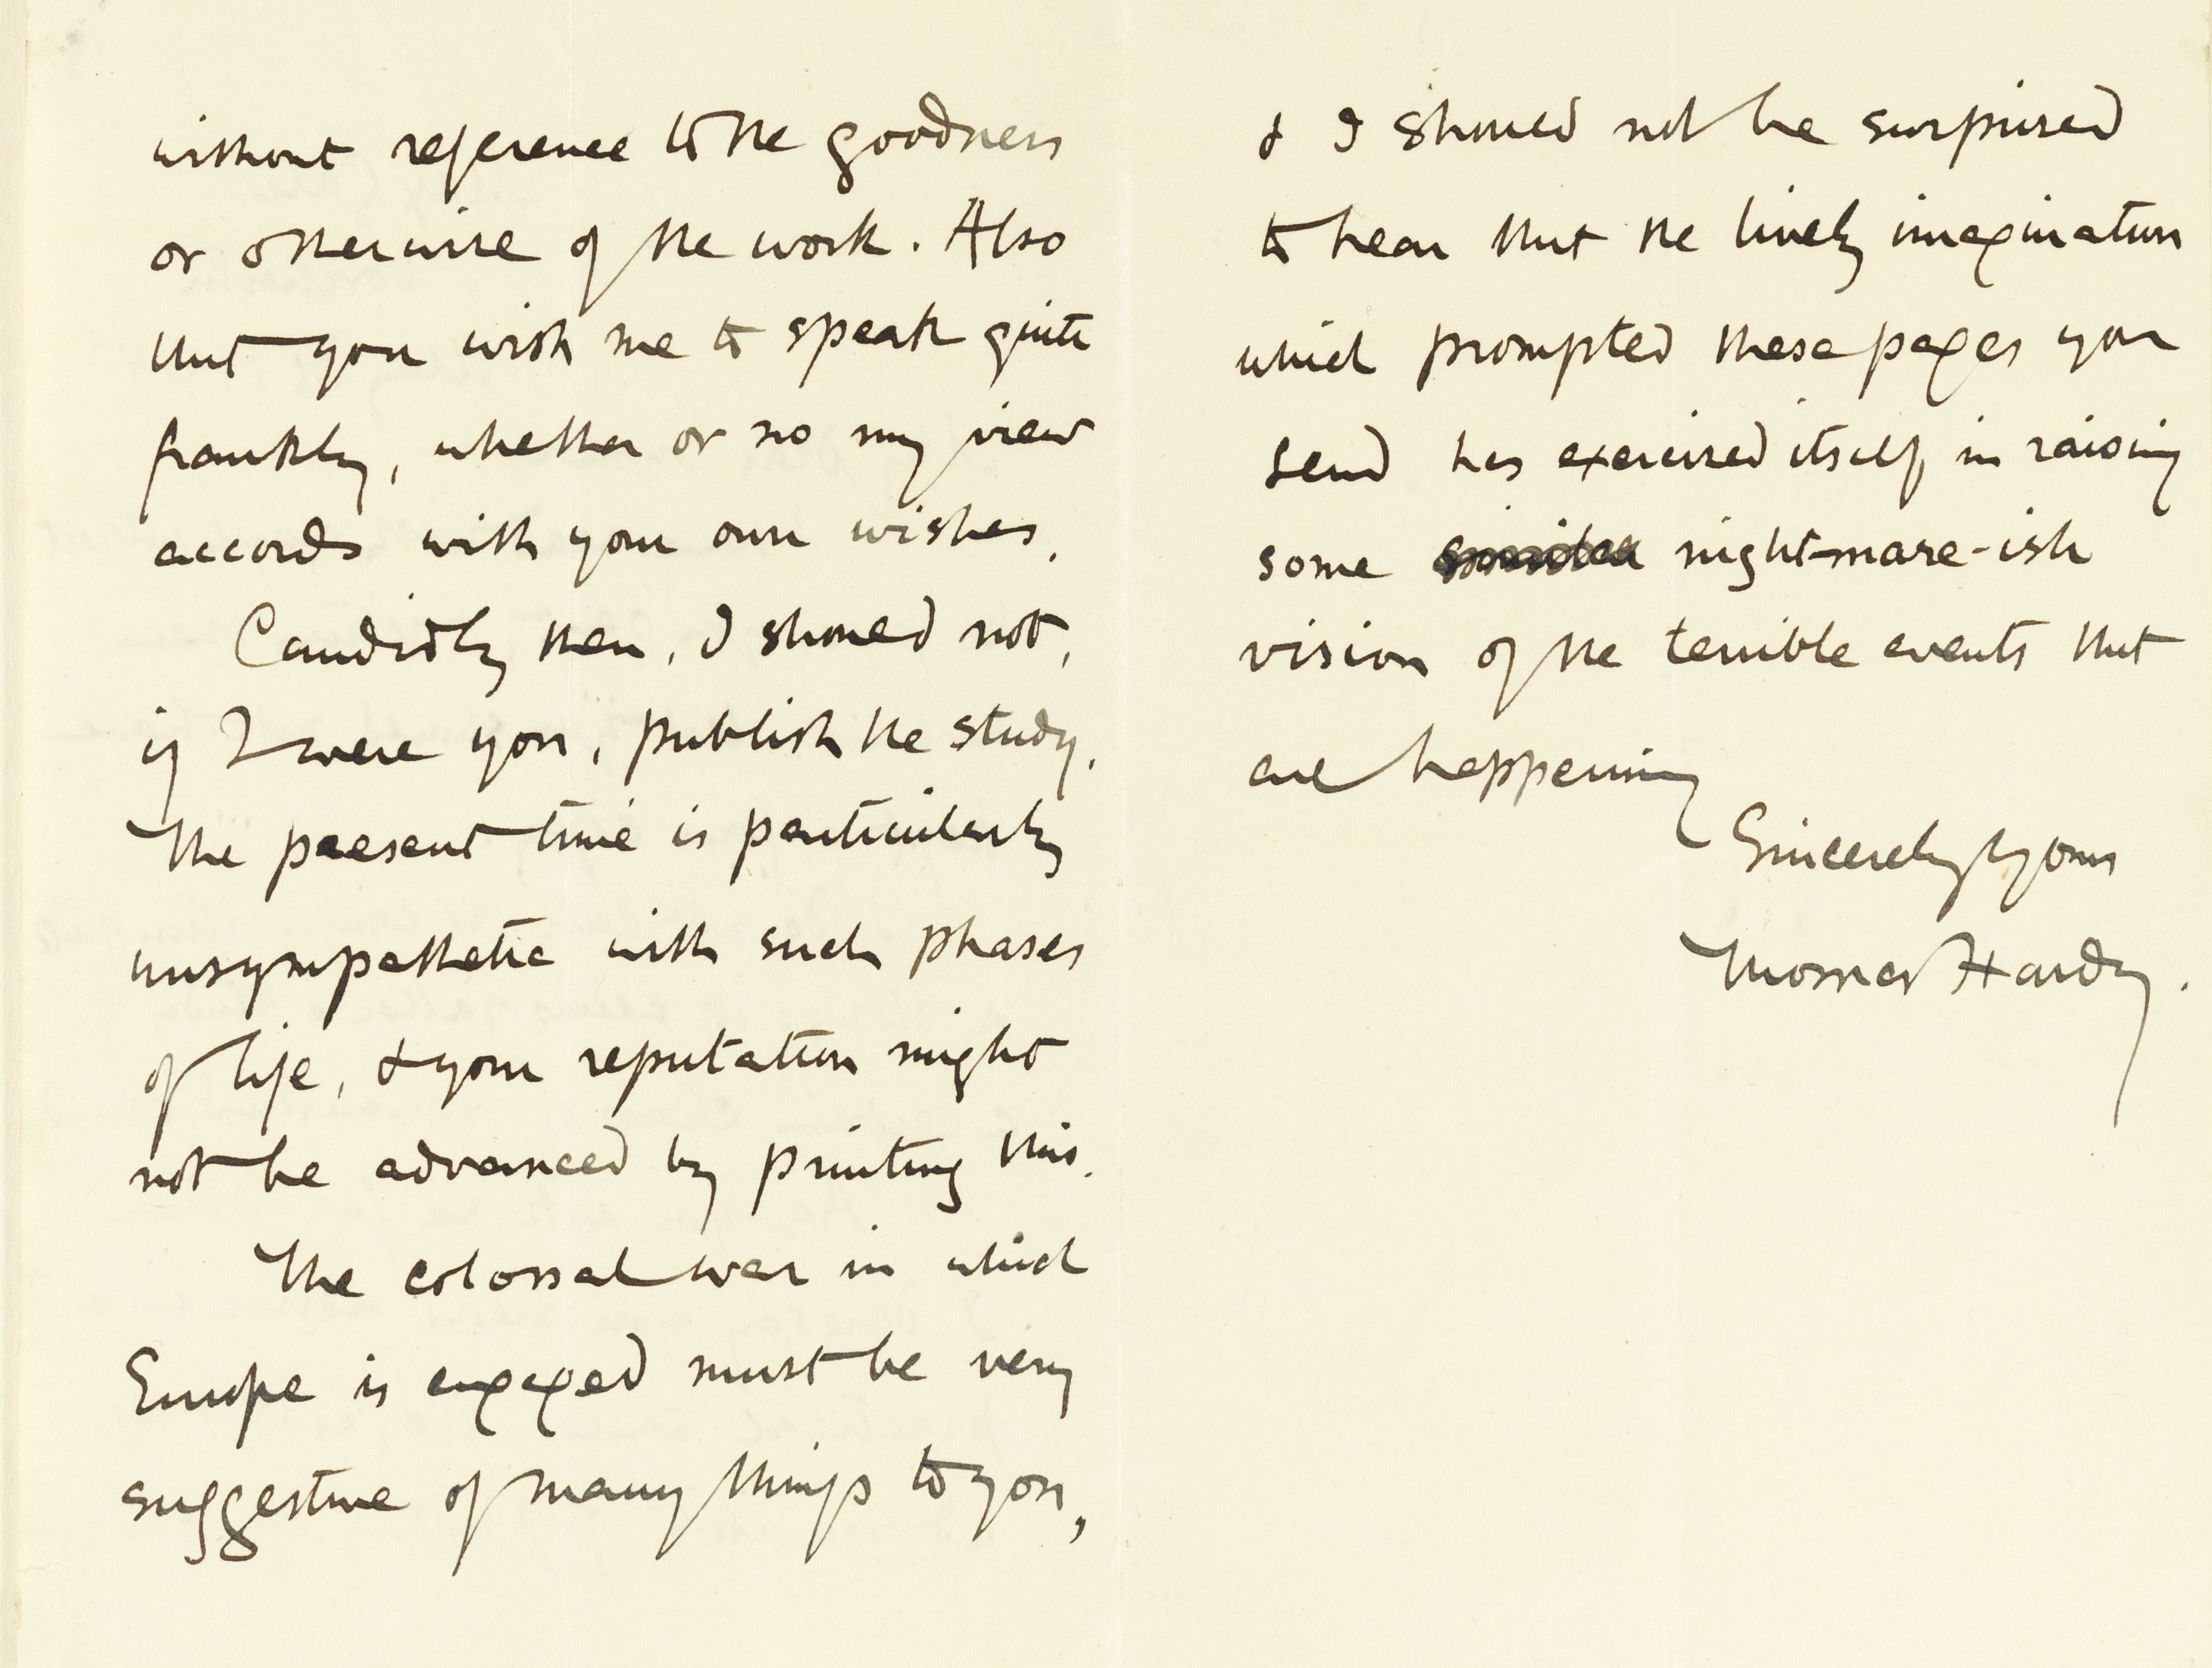 without reference to the goodness
or otherwise of the work. Also
that you wish me to speak quite
frankly, whether or no my view
accords with your own wishes.
Candidly then, I should not,
if I were you, publish the study.
The present time is particularly
unsympathetic with such phases
of life, & your reputation might
not be advanced by printing this.
The colossal war in which
Europe is engaged must be very
suggestive of many things to you,
& I should not be surprised
to hear that the lively imagination
which prompted these pages you
send has exercised itself in raising
some night-mare-ish
vision of the terrible events that
are happening
Sincerely yours
Thomas Hardy.